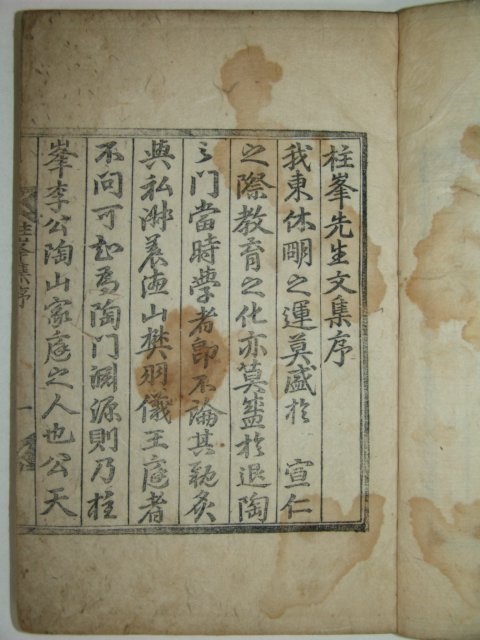 柱峯先生文集序
我東休明之運莫盛於 宣仁
之際敎育之化亦莫盛於退陶
之門當時學者卽不論其親炙
與私淑養德山樊羽儀王庭者
不問可知爲陶門淵源則乃柱
峯李公陶山家庭之人也公天
柱峯集序
一